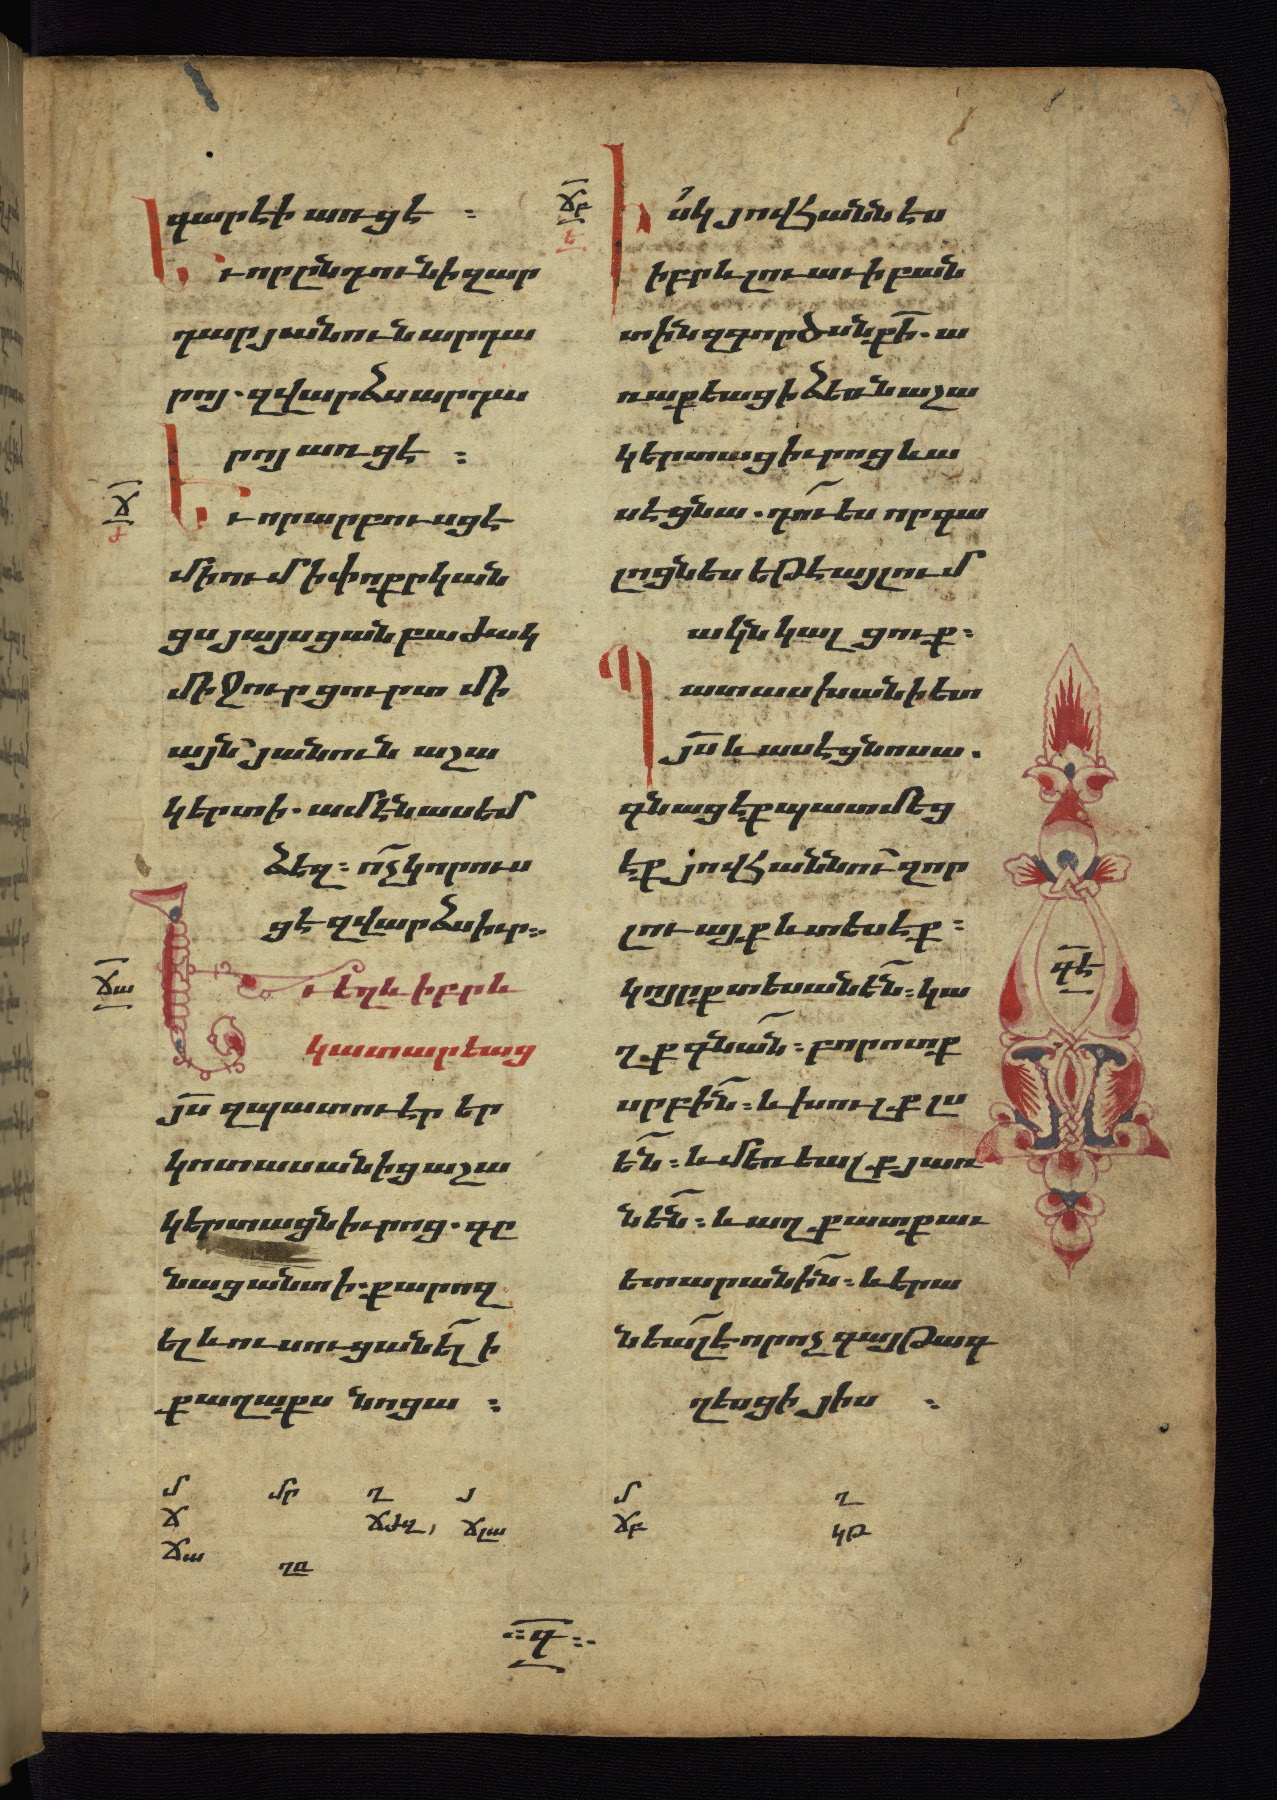 գարէի առցէ ։
Եւ որընդունի զար
դար յանուն արդա
րոյ. զվարձս արդա
րոյ առցէ ։
Ճ
Ժ
Եւ որ արբուսցէ
միում ի փոքրկան
ցս յայսցանբաժակ
մի ջուր ցուրտ մի
այն յանուն աշա
կերտի. ամէն ասեմ
ձեզ։ ո՛չ կորուս
ցէ զվարձս իւր։.
ՃԱ
Եւ եղև իբրև
կատարեաց
յս զպատուէր եր
կոտասանից աշա
կերտացն իւրոց. գը
նաց անտի. քարոզ
ել և ուսուցանել ի
քաղաքս նոցա ։
ՃԲ
Ե
Իսկ յովհաննես
իբրև լուաւ ի բան
տին զգործսն քի. ա
ռաքեաց ի ձեռն աշա
կերտաց իւրոց և ա
սէ ցնա. դու ես որ գա
լոցն ես եթէ այլում
ակն կալցուք։
Պատասխանի ետ
յս և ասէ ցնոսա.
գնացէք պատմեց
էք յովհաննու զոր
լուայք և տեսէք։
կոյրք տեսանեն։ կա
ղք գնան։ բորոտք
սրբին։ և խուլք լս
են։ և մեռեալք յառ
նեն։ և աղքատք աւ
ետարանին։ և երա
նեալ է որ ոչ գայթագ
ղեսցի յիս ։
ԳԷ
մ մր ղ յ
Ճ ՃԺԶ, ՃԼԱ
ՃԱ ՂԸ
մ ղ
ՃԲ ԿԹ
։Գ։.